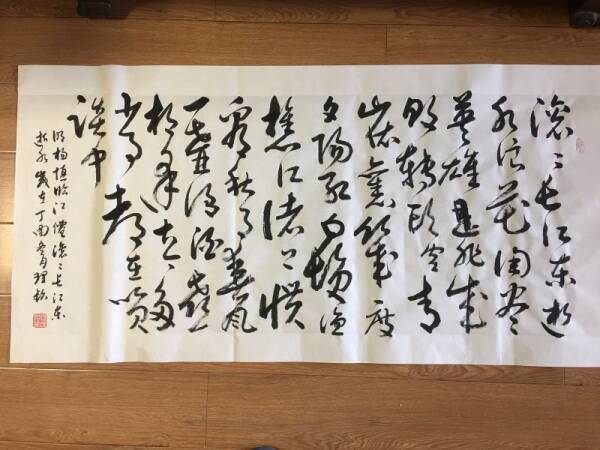 滚〻长江东逝
水浪花淘尽
英雄是非成
败转头空青
山依舊在幾度
夕阳红白髮渔
樵江渚上惯
看秋月春风
一壶浊酒喜
相逢古今多
少事都在笑
谈中
明杨慎临江僊滚〻长江东
逝水岁在丁酉月